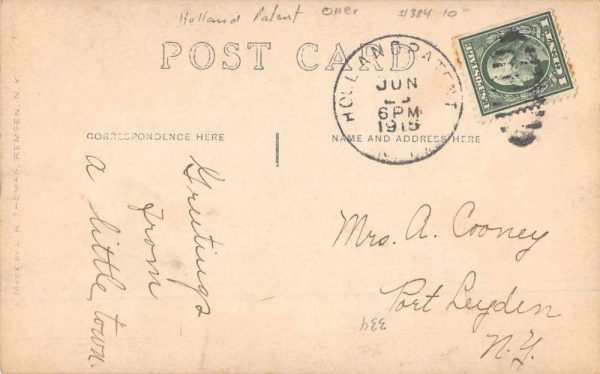 Holland Patent #384 10-
POST CARD
HOLLAND PATENT
JUN
6PM
1915
N.Y.
U.S. POSTAGE
1 CENT 1
CORRESPONDENCE HERE
NAME AND ADDRESS HERE
Greetings
from
a little town.
Mrs. A. Cooney
Port Leyden
N.Y.
334
MADE BY L. R. THOMAS, REMSEN, N.Y.